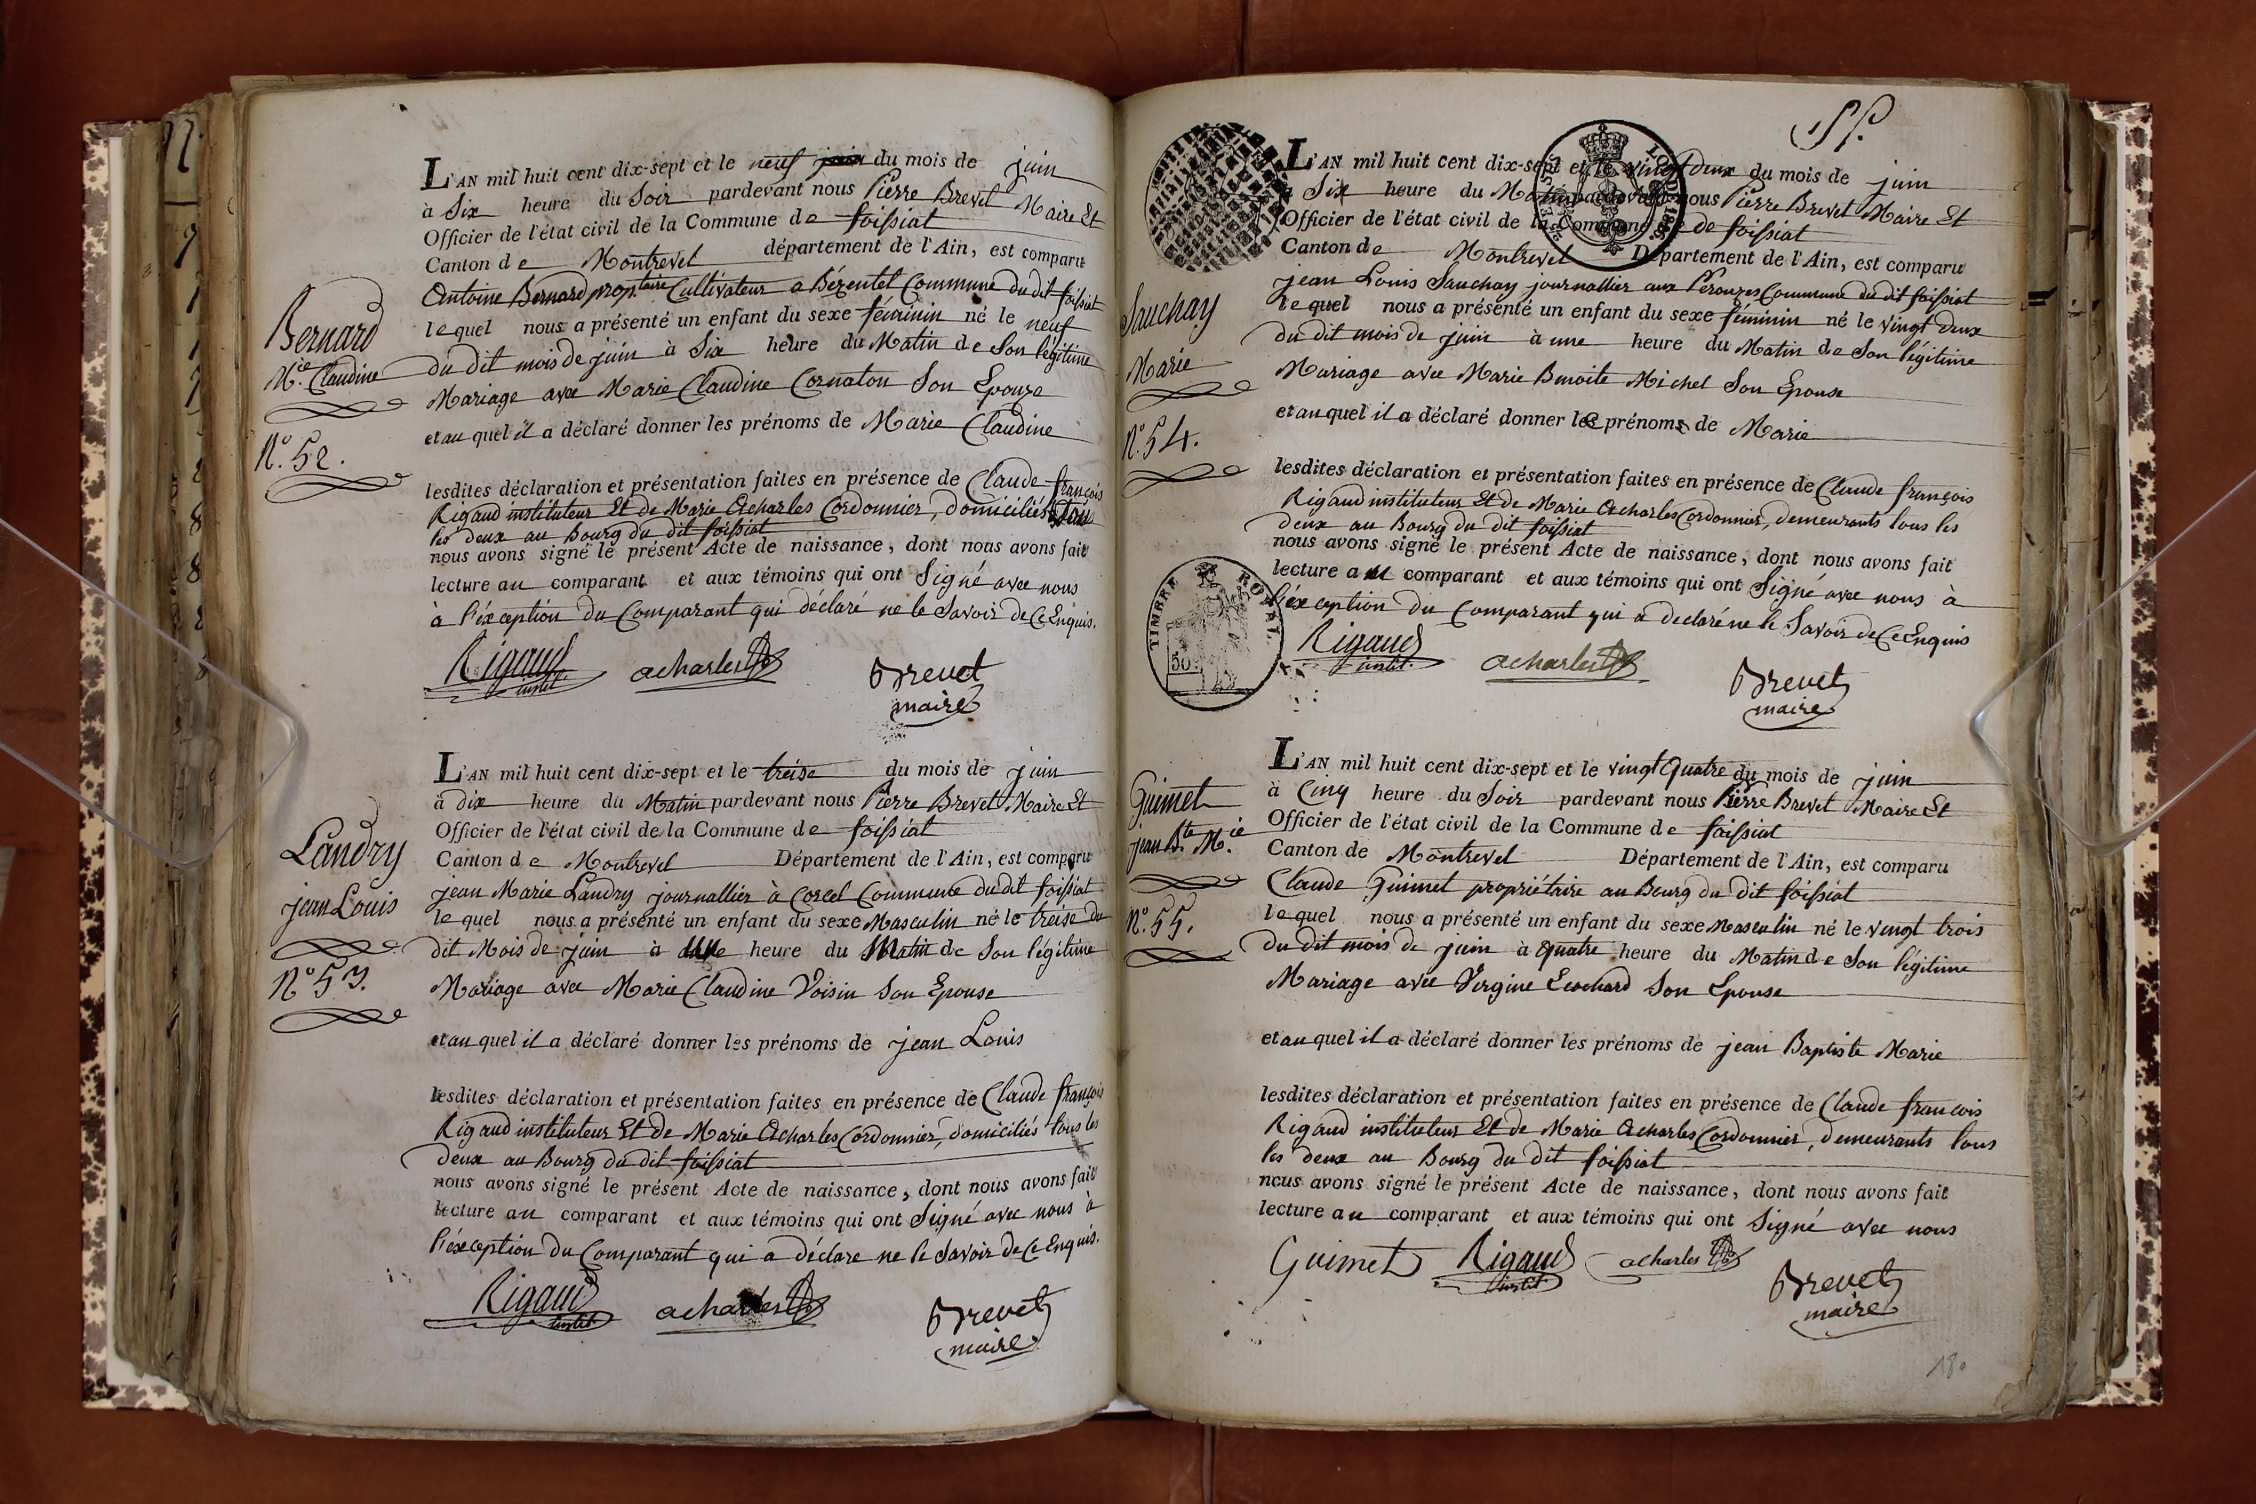 L'AN mil huit cent dix-sept et le neuf du mois de juin
à Six heure du Soir pardevant nous Pierre Brevet Maire Et
Officier de l'état civil de la Commune de foissiat
Canton de Montrevel département de l'Ain, est comparu
Antoine Bernard prop.taire Cultivateur a Bézentet Commune du dit foissiat
lequel nous a présenté un enfant du sexe féminin né le neuf
du dit mois de juin à Six heure du Matin de Son légitime
Mariage avec Marie Claudine Cornaton Son Epouze
et au quel il a déclaré donner les prénoms de Marie Claudine
lesdites déclaration et présentation faites en présence de Claude françois
Rigaud instituteur Et de Marie Acharles Cordonnier, domiciliés tous
les deux au Bourg du dit foissiat
nous avons signé le présent Acte de naissance, dont nous avons fait
lecture au comparant et aux témoins qui ont Signé avec nous
à l'éxception du Comparant qui déclaré ne le Savoir de Ce Enquis.
Rigaud instit. acharles Brevet
maire
Bernard
M.ie Claudine
N.° 52.
L'AN mil huit cent dix-sept et le treise du mois de juin
à dix heure du Matin pardevant nous Pierre Brevet Maire Et
Officier de l'état civil de la Commune de foissiat
Canton de Montrevel Département de l'Ain, est comparu
jean Marie Landry journallier à Corcel Commune du dit foissiat
lequel nous a présenté un enfant du sexe Masculin né le treise du
dit Mois de juin à une heure du Matin de Son légitime
Mariage avec Marie Claudine Voisin Son Epouse
et au quel il a déclaré donner les prénoms de jean Louis
lesdites déclaration et présentation faites en présence de Claude françois
Rigaud instituteur Et de Marie Acharles Cordonnier, domiciliés tous les
deux au Bourg du dit foissiat
nous avons signé le présent Acte de naissance, dont nous avons fait
lecture au comparant et aux témoins qui ont Signé avec nous à
l'éxception du Comparant qui a déclare ne le Savoir de Ce Enquis.
Rigaud instit. acharles Brevet
maire
Landry
jean Louis
N° 53.
L'AN mil huit cent dix-sept et le vingt deux du mois de juin
à Six heure du Matin pardevant nous Pierre Brevet Maire Et
Officier de l'état civil de la Commune de foissiat
Canton de Montrevel Département de l'Ain, est comparu
jean Louis Sauchay journallier aux Perouzes Commune du dit foissiat
lequel nous a présenté un enfant du sexe féminin né le vingt deux
du dit mois de juin à une heure du Matin de Son légitime
Mariage avec Marie Benoite Michel Son Epouse
et au quel il a déclaré donner le prénom de Marie
lesdites déclaration et présentation faites en présence de Claude françois
Rigaud instituteur Et de Marie Acharles Cordonnier, demeurants tous les
deux au Bourg du dit foissiat
nous avons signé le présent Acte de naissance, dont nous avons fait
lecture au comparant et aux témoins qui ont Signé avec nous à
l'éxception du Comparant qui a declaré ne le Savoir de Ce Enquis
Rigaud instit. acharles Brevet
maire
Sauchay
Marie
N.° 54.
TIMBRE ROYAL
50
L'AN mil huit cent dix-sept et le vingt Quatre du mois de juin
à Cinq heure du Soir pardevant nous Pierre Brevet Maire Et
Officier de l'état civil de la Commune de foissiat
Canton de Montrevel Département de l'Ain, est comparu
Claude Guimet propriétaire au Bourg du dit foissiat
lequel nous a présenté un enfant du sexe Masculin né le vingt trois
du dit mois de juin à quatre heure du Matin de Son légitime
Mariage avec Virgine Ecochard Son Epouse
et au quel il a déclaré donner les prénoms de jean Baptiste Marie
lesdites déclaration et présentation faites en présence de Claude francois
Rigaud instituteur Et de Marie Acharles Cordonnier, demeurants tous
les deux au Bourg du dit foissiat
nous avons signé le présent Acte de naissance, dont nous avons fait
lecture au comparant et aux témoins qui ont Signé avec nous
Guimet Rigaud instit. acharles Brevet
maire
Guimet
jean B.te M.ie
N.° 55.
180